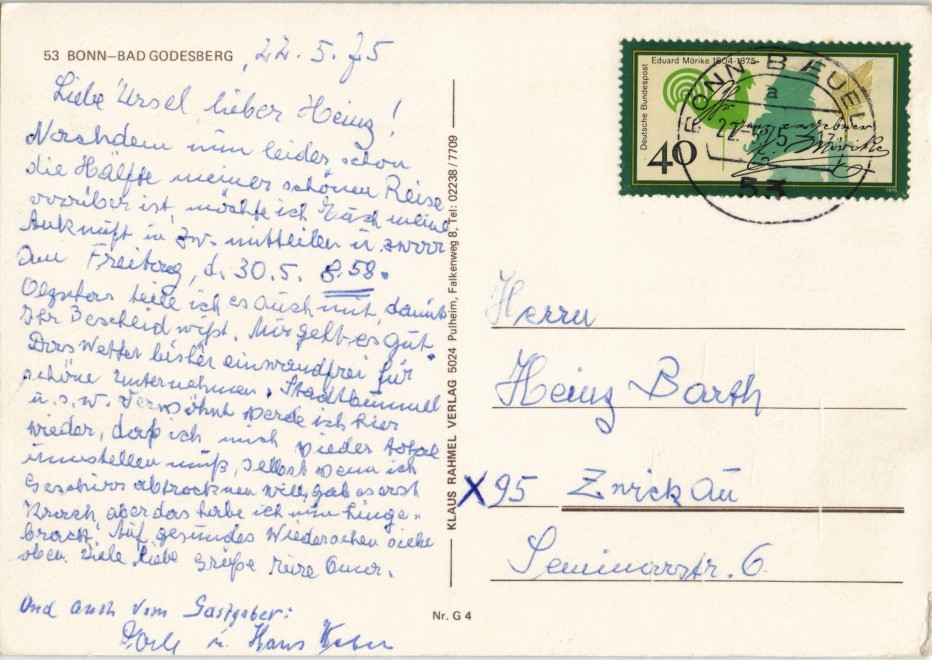 53 BONN–BAD GODESBERG
22.5.75
Liebe Ursel, lieber Heinz!
Nachdem nun leider schon
die Hälfte meiner schönen Reise
vorüber ist, möchte ich Euch meine
Ankunft in Zw. mitteilen u. zwar
am Freitag, d. 30.5. 8.58.
teile ich es auch mit, damit
Ihr Bescheid wißt. Mir geht es gut.
Das Wetter bisher einwandfrei für
schöne Unternehmen, Stadtbummel
u.s.w. Verwöhnt werde ich hier
wieder, daß ich mich wieder total
umstellen muß, selbst wenn ich
Geschirr abtrocknen will, gab es erst
Krach, aber das habe ich nun hinge-
bracht. Auf gesundes Wiedersehen siehe
oben. Viele liebe Grüße Eure Omar.
Und auch vom Gastgeber:
u. Hans
KLAUS RAHMEL VERLAG 5024 Pulheim, Falkenweg 8, Tel: 02238/7709
Nr. G 4
Deutsche Bundespost
Eduard Mörike 1804-1875
40
Mörike
1975
BONN-BEUEL
a
22.5.75
53
Herrn
Heinz Barth
X 95 Zwickau
Seminarstr. 6